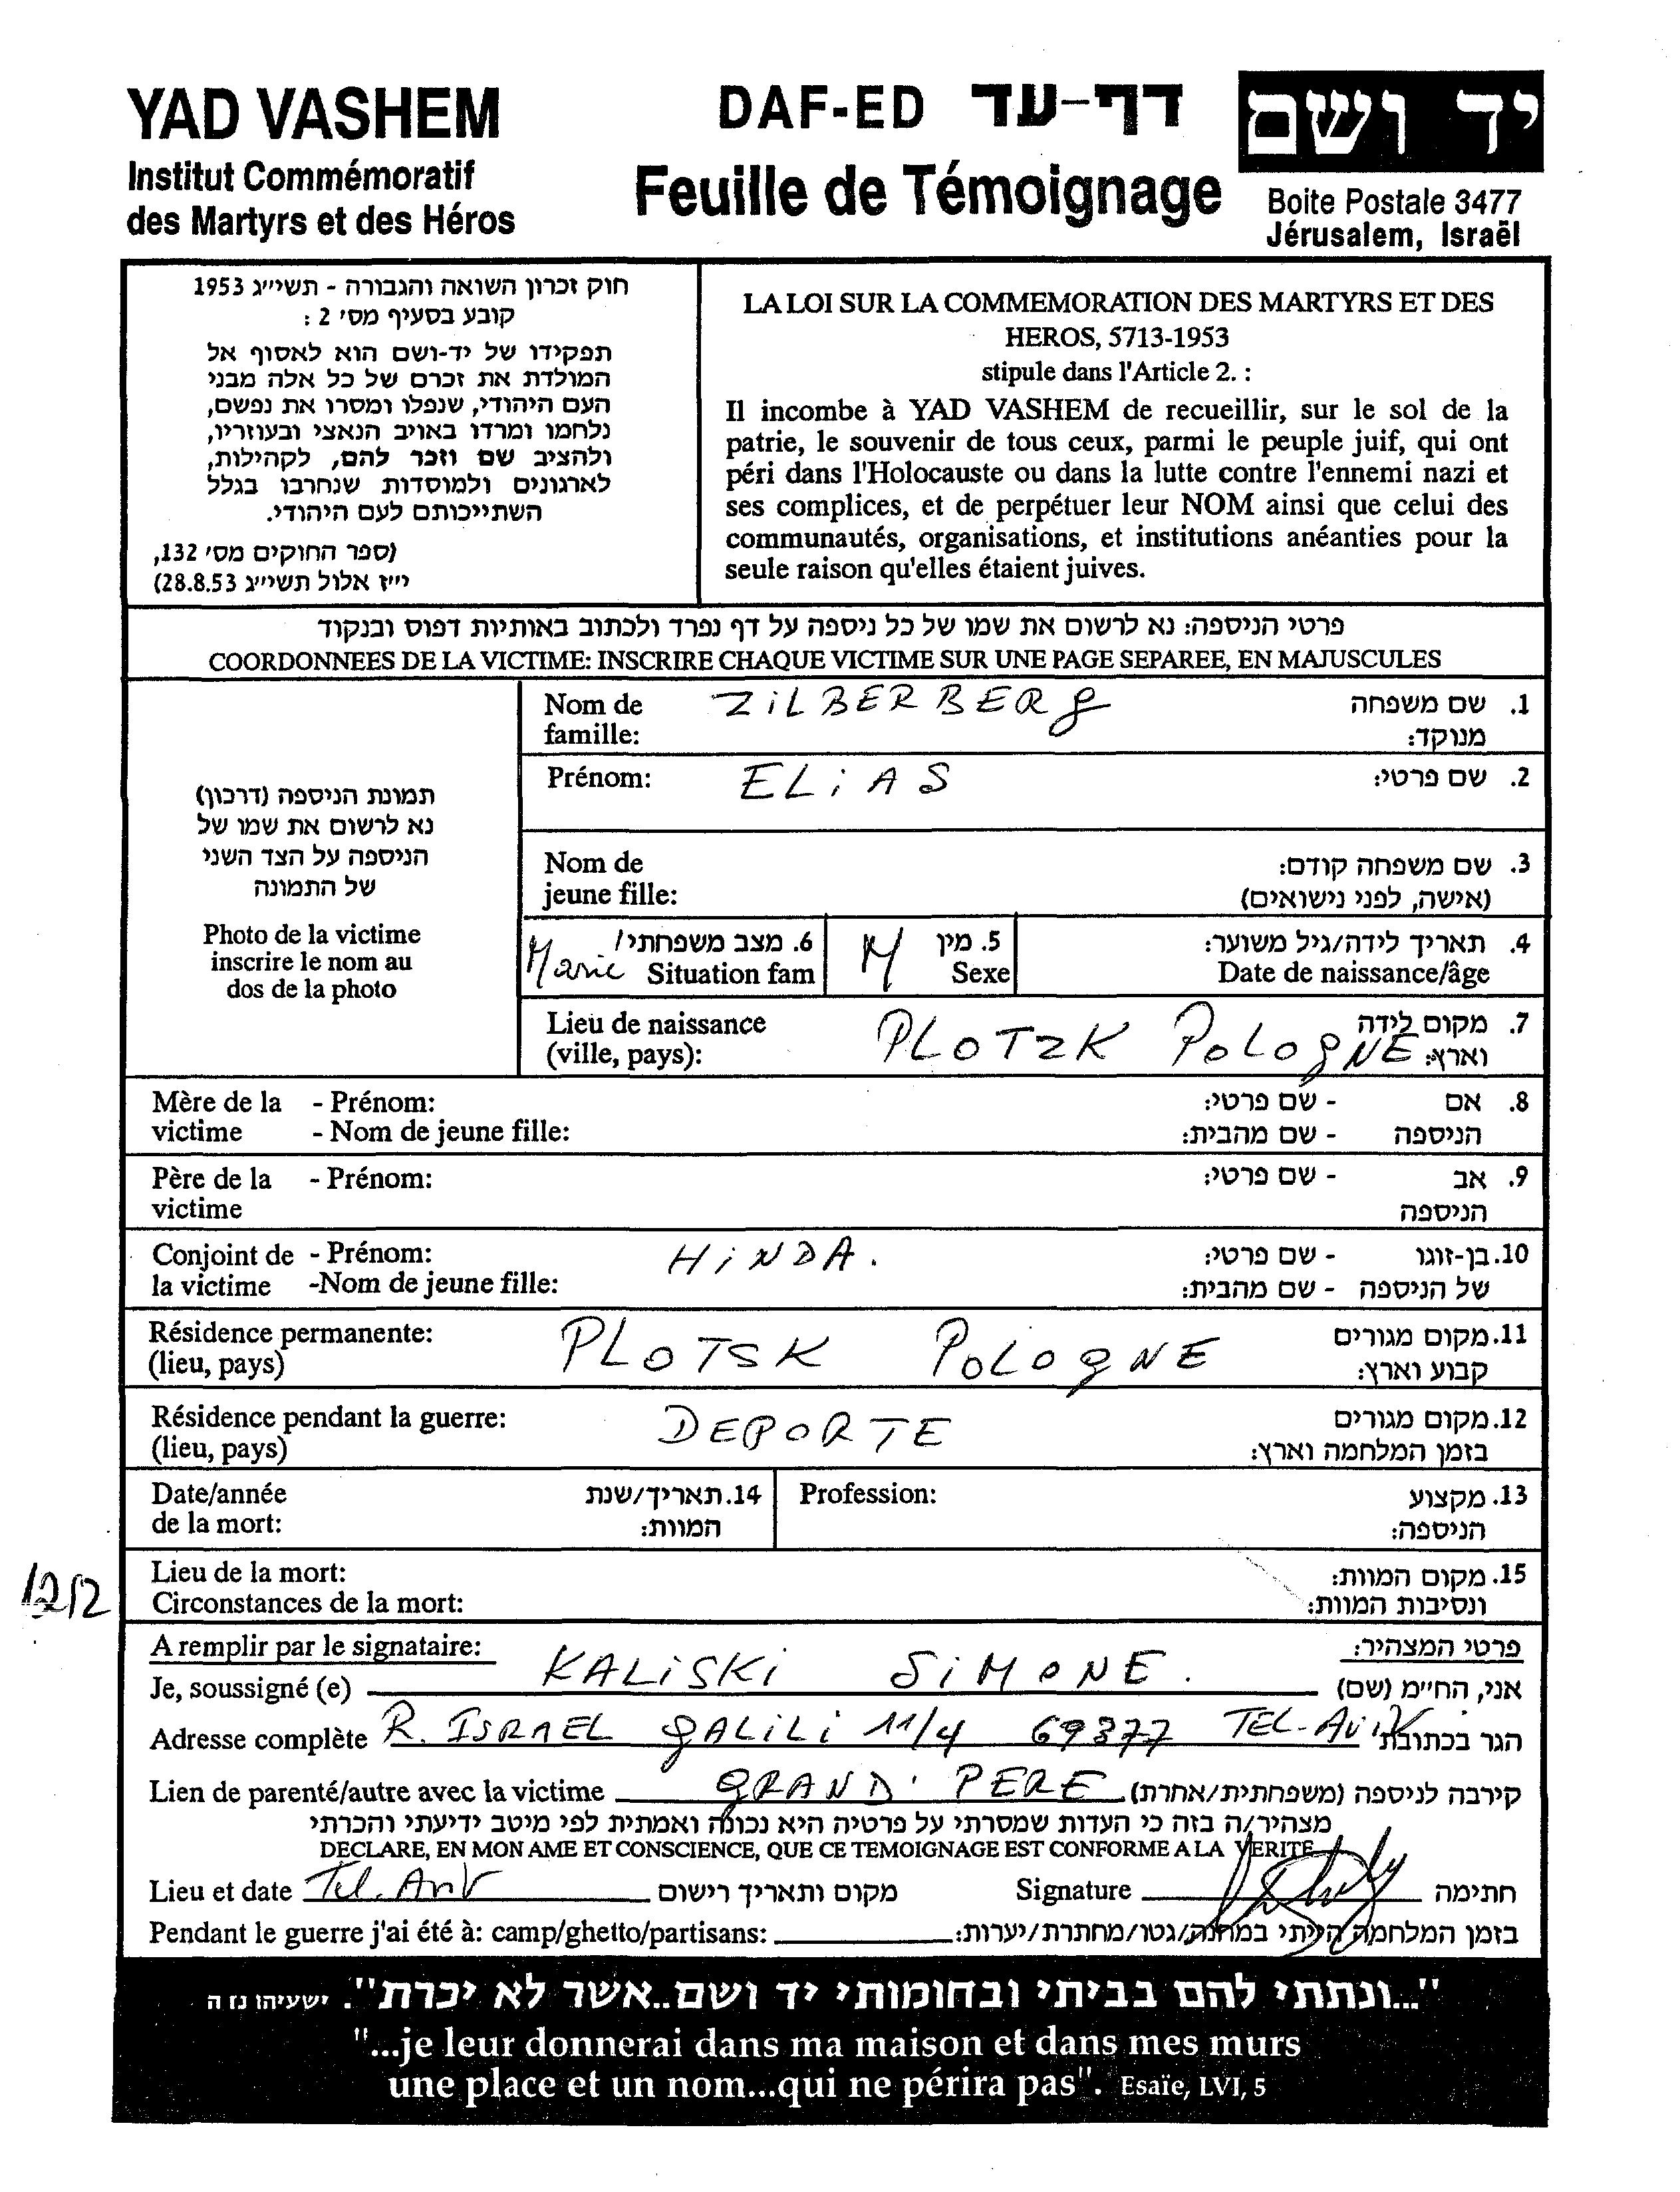 YAD VASHEM
Institut Commémoratif
des Martyrs et des Héros
DAF-ED דף-עד
Feuille de Témoignage
יד ושם
Boite Postale 3477
Jérusalem, Israël
חוק זכרון השואה והגבורה - תשי״ג 1953
קובע בסעיף מס׳ 2 :
תפקידו של יד-ושם הוא לאסוף אל
המולדת את זכרם של כל אלה מבני
העם היהודי, שנפלו ומסרו את נפשם,
נלחמו ומרדו באויב הנאצי ובעוזריו,
ולהציב שם וזכר להם, לקהילות,
לארגונים ולמוסדות שנחרבו בגלל
השתייכותם לעם היהודי.
(ספר החוקים מס׳ 132,
י״ז אלול תשי״ג 28.8.53)
LA LOI SUR LA COMMEMORATION DES MARTYRS ET DES
HEROS, 5713-1953
stipule dans l'Article 2. :
Il incombe à YAD VASHEM de recueillir, sur le sol de la
patrie, le souvenir de tous ceux, parmi le peuple juif, qui ont
péri dans l'Holocauste ou dans la lutte contre l'ennemi nazi et
ses complices, et de perpétuer leur NOM ainsi que celui des
communautés, organisations, et institutions anéanties pour la
seule raison qu'elles étaient juives.
פרטי הניספה: נא לרשום את שמו של כל ניספה על דף נפרד ולכתוב באותיות דפוס ובנקוד
COORDONNEES DE LA VICTIME: INSCRIRE CHAQUE VICTIME SUR UNE PAGE SEPAREE, EN MAJUSCULES
תמונת הניספה (דרכון)
נא לרשום את שמו של
הניספה על הצד השני
של התמונה
Photo de la victime
inscrire le nom au
dos de la photo
Nom de ZILBERBERG 1. שם משפחה
famille: מנוקד:
Prénom: ELiAS 2. שם פרטי:
Nom de 3. שם משפחה קודם:
jeune fille: (אישה, לפני נישואים)
6. מצב משפחתי/ 5. מין 4. תאריך לידה/גיל משוער:
Marié Situation fam M Sexe Date de naissance/âge
Lieu de naissance PLOTZK POLOGNE 7. מקום לידה
(ville, pays): וארץ:
Mère de la - Prénom: - שם פרטי: 8. אם
victime - Nom de jeune fille: - שם מהבית: הניספה
Père de la - Prénom: - שם פרטי: 9. אב
victime הניספה
Conjoint de - Prénom: HiNDA. - שם פרטי: 10.בן-זוגו
la victime -Nom de jeune fille: - שם מהבית: של הניספה
Résidence permanente: PLOTSK POLOGNE 11.מקום מגורים
(lieu, pays) קבוע וארץ:
Résidence pendant la guerre: DEPORTE 12.מקום מגורים
(lieu, pays) בזמן המלחמה וארץ:
Date/année 14.תאריך/שנת Profession: 13.מקצוע
de la mort: המוות: הניספה:
Lieu de la mort: 15.מקום המוות:
Circonstances de la mort: ונסיבות המוות:
A remplir par le signataire: פרטי המצהיר:
Je, soussigné (e) KALiSKi SiMONE. אני, החי״מ (שם)
Adresse complète R. ISRAEL GALiLi 11/4 69377 TEL-AViV הגר בכתובת
Lien de parenté/autre avec la victime GRAND'PERE קירבה לניספה (משפחתית/אחרת)
מצהיר/ה בזה כי העדות שמסרתי על פרטיה היא נכונה ואמתית לפי מיטב ידיעתי והכרתי
DECLARE, EN MON AME ET CONSCIENCE, QUE CE TEMOIGNAGE EST CONFORME A LA VERITE
Lieu et date Tel.Aviv מקום ותאריך רישום Signature חתימה
Pendant le guerre j'ai été à: camp/ghetto/partisans: בזמן המלחמה הייתי במחנה/גטו/מחתרת/יערות:
"...ונתתי להם בביתי ובחומותי יד ושם..אשר לא יכרת". ישעיהו נז ה
"...je leur donnerai dans ma maison et dans mes murs
une place et un nom...qui ne périra pas". Esaïe, LVI, 5